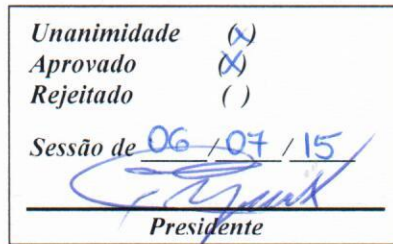 Unanimidade (X)
Aprovado (X)
Rejeitado ( )
Sessão de 06 / 07 / 15
Presidente